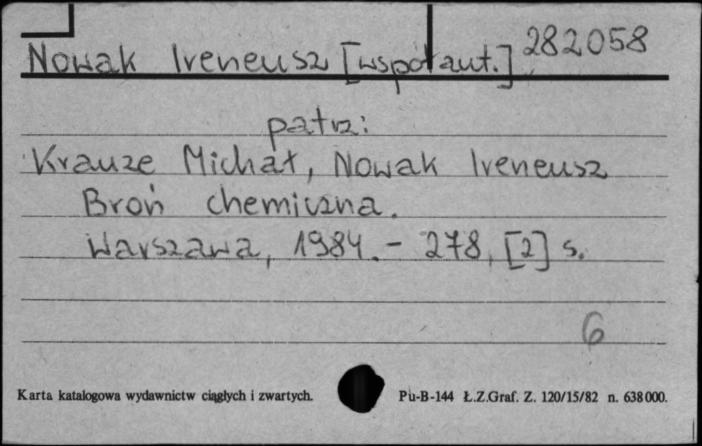 Nowak Ireneusz [współaut.] 282058
patrz:
Krauze Michał, Nowak Ireneusz
Broń chemiczna.
Warszawa, 1984. - 278, [2] s.
6
Karta katalogowa wydawnictw ciągłych i zwartych. Pu-B-144 Ł.Z.Graf. Z. 120/15/82 n. 638000.